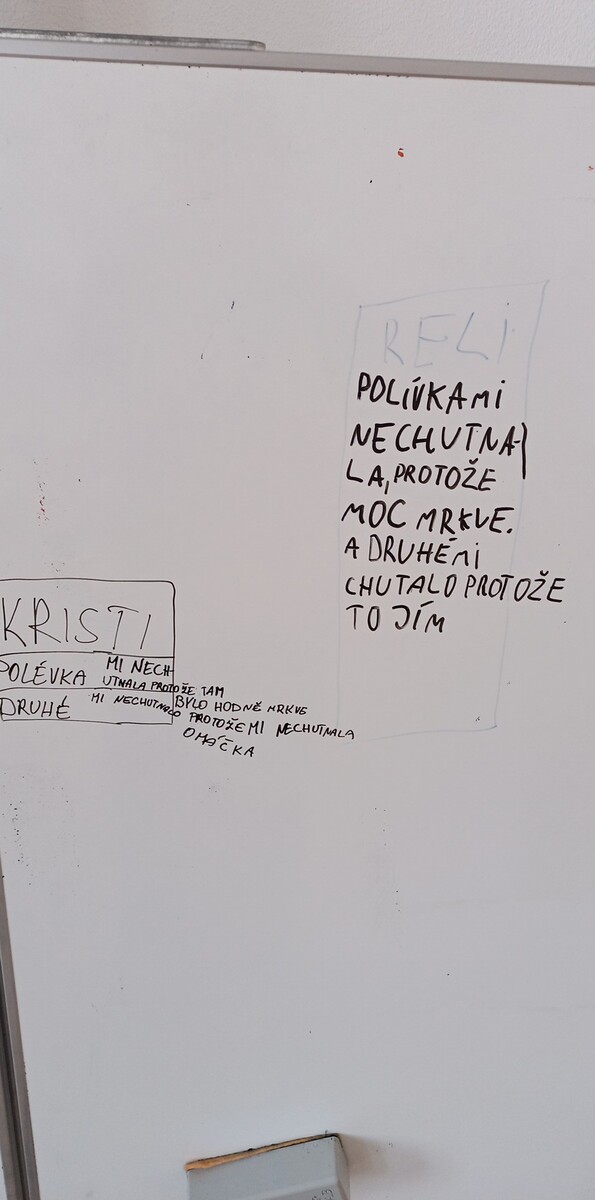 RELI
POLÍVKA MI
NECHUTNA-
LA, PROTOŽE
MOC MRKVE.
A DRUHÉ MI
CHUTALO PROTOŽE
TO JÍM
KRISTI
POLÉVKA MI NECH-
UTNALA PROTOŽE TAM
BYLO HODNĚ MRKVE
DRUHÉ MI NECHUTNALO PROTOŽE MI NECHUTNALA
OMÁČKA